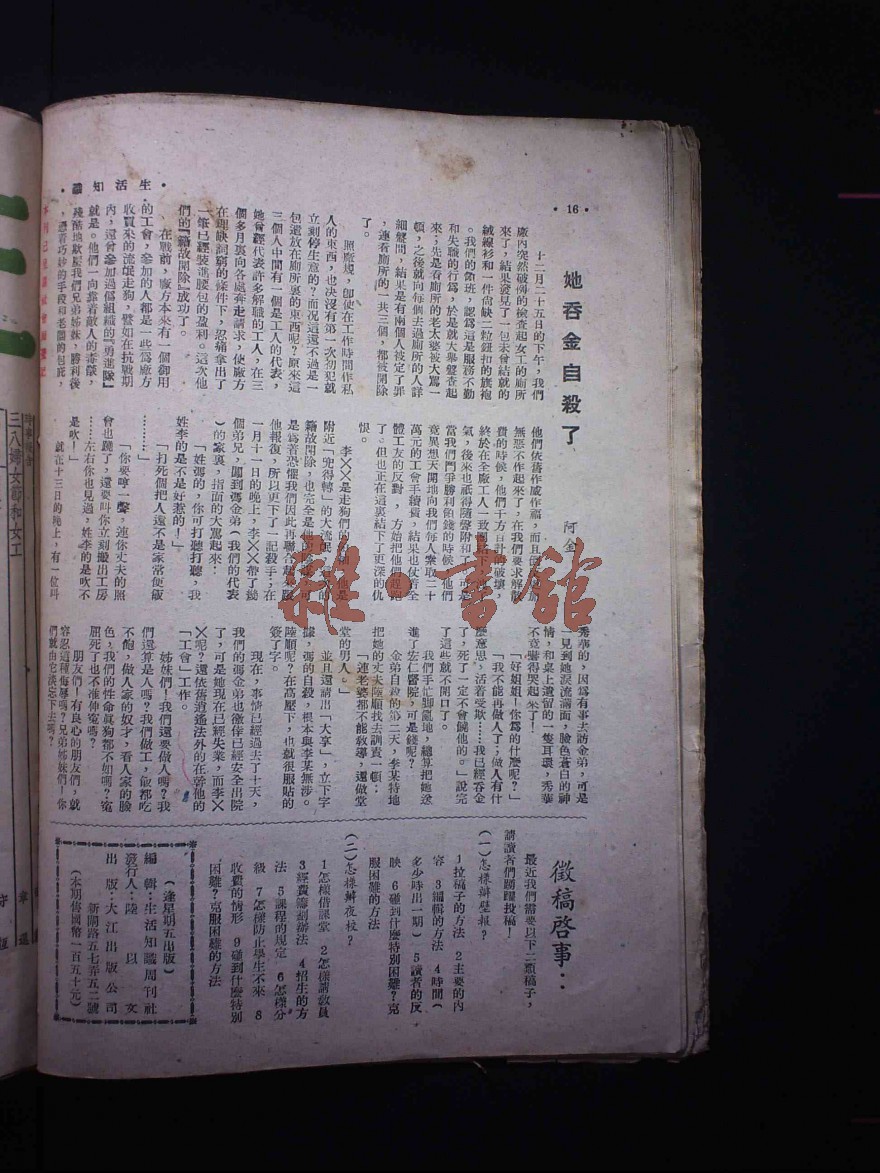 ·16·
·生活知識·
她吞金自殺了
阿金
十二月二十五日的下午，我們
廠內突然破例的檢查起女工的廁所
來了，結果發見了一包未曾結就的
絨線衫和一件尚缺二粒鈕扣的旗袍
。我們的領班，認爲這是服務不勤
和失職的行爲，於是就大舉盤查起
來；先是看廁所的老太婆被大罵一
頓，之後就向每個去過廁所的人詳
細盤問，結果是有兩個人被定了罪
，連看廁所的一共三個，都被開除
了。
照廠規，卽使在工作時間作私
人的東西，也决沒有第一次初犯就
立刻停生意的？而况這還不過是一
包還放在廁所裏的東西呢？原來這
三個人中間有一個是工人的代表，
她曾經代表許多解職的工人，在三
個多月裏向各處奔走請求，使廠方
在理缺詞窮的條件下，忍痛拿出了
一筆已經裝進腰包的盈利。這次他
們的『籍故開除』成功了。
在戰前，廠方本來有一個御用
的工會，參加的人都是一些爲廠方
收買來的流氓走狗，譬如在抗戰期
內，還曾參加過僞組織的『勇進隊』
就是。他們一向靠着敵人的毒燄，
殘酷地欺壓我們兄弟姊妹，勝利後
，憑着巧妙的手段和老闆的包庇，
他們依舊作威作福，而且
無惡不作起來了，在我們要求解散
費的時候，他們千方百計的破壞，
終於在全廠工人一致團結下
氣，後來也祇得隨聲附和
當我們鬥爭勝利餉錢的時候，他們
竟異想天開地向我們每人索取二十
萬元的工會手續費，結果也仗着全
體工友的反對，方始把他們趕跑
了。但也正在這裏結下了更深的仇
恨。
李××是走狗們的
附近「兜得轉」的大流氓
籍故開除，也完全是他
是爲着恐懼我們因此再聯合起來跟
他報復，所以更下了一記殺手，在
一月十一日的晚上，李××帶了幾
個弟兄，闖到張金弟（我們的代表
）的家裏，指面的大罵起來：
「姓張的，你可打聽打聽，我
姓李的是不是好惹的！」
「打死個把人還不是家常便飯
…………」
「你要哼一聲，連你丈夫的照
會也蹺了，還要叫你立刻搬出工房
……左右你也見過，姓李的是吹不
是吹！」
就在十三日的晚上，有一位叫
秀華的，因爲有事去訪金弟，可是
一見到她淚流滿面，臉色蒼白的神
情，和桌上遺留的一隻耳環，秀華
不意驚得哭起來了！
「好姐姐！你爲的什麼呢？」
「我不能再做人了，做人有什
麼意思，活着受欺……我已經吞金
了，死了一定不會饒他的。」說完
了這些就不開口了。
我們手忙脚亂地，總算把她送
進了宏仁醫院，可是錢呢？
金弟自殺的第二天，李某特地
把她的丈夫陸順找去訓責一頓：
「連老婆都不能教導，還做堂
堂的男人。」
並且還請出「大享」，立下字
據，張的自殺，根本與李某無涉。
陸順呢？在高壓下，也就很服貼的
簽了字。
現在，事情已經過去了十天，
我們的張金弟也徼倖已經安全出院
了，可是她現在已經失業，而李×
×呢？還依舊逍遙法外的在幹他的
「工會」工作。
姊妹們！我們還要做人嗎？我
們還算是人嗎？我們做工，飯都吃
不飽，做人家的奴才，看人家的臉
色，我們的性命眞狗都不如嗎？寃
屈死了也不准伸寃嗎？
朋友們！有良心的朋友們，就
容忍這種侮辱嗎？兄弟姊妹們！你
們就由它淡忘下去嗎？
徵稿啓事：
最近我們需要以下二類稿子，
請讀者們踴躍投稿！
（一）怎樣辦壁報？
1拉稿子的方法　2主要的內
容　3編輯的方法　4時間（
多少時出一期）　5讀者的反
映　6碰到什麼特別困難？克
服困難的方法
（二）怎樣辦夜校？
1怎樣借課堂　2怎樣請教員
3經費籌劃辦法　4招生的方
法　5課程的規定　6怎樣分
級　7怎樣防止學生不來　8
收費的情形　9碰到什麼特別
困難？克服困難的方法
（逢星期五出版）
編輯：生活知識周刊社
發行人：陸以文
出版：大江出版公司
新閘路五七弄五二號
（本期售國幣一百五十元）
三八婦女節和女工
雜·書館